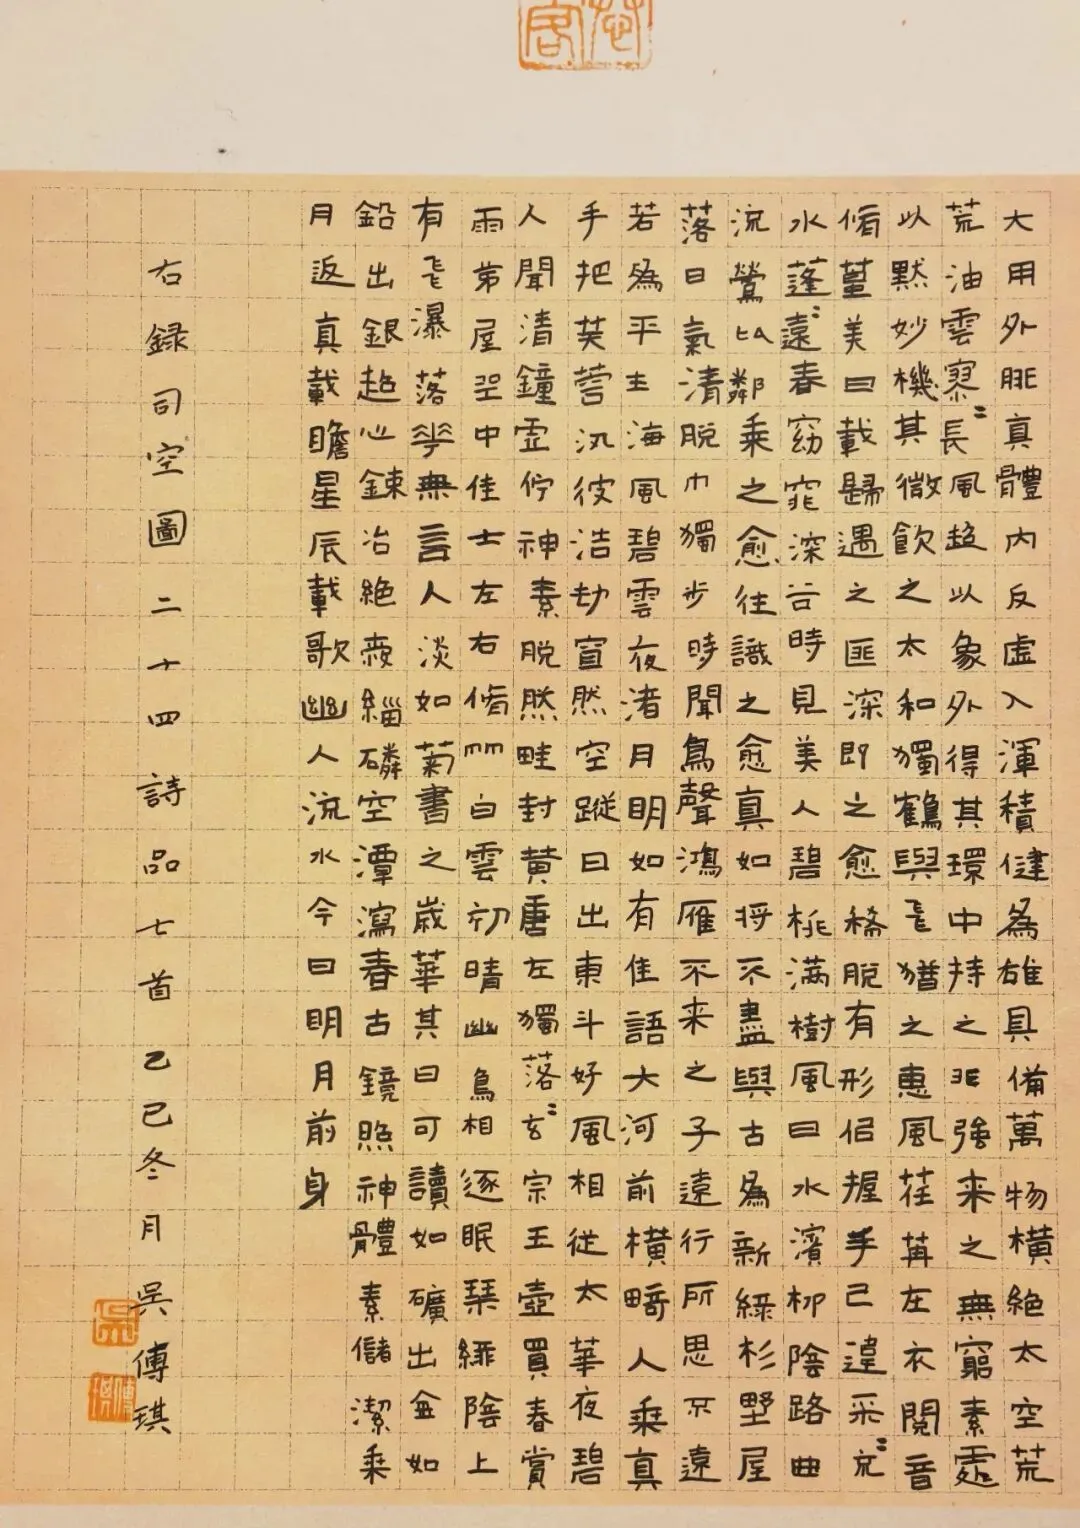 大用外腓真體内反虛入渾積健為雄具備萬物橫絕太空荒
荒油雲寥〻長風超以象外得其環中持之非強来之無窮素處
以默妙機其微飲之太和獨鶴與飛猶之惠風荏苒在衣閱音
脩篁美曰載歸遇之匪深即之愈稀脫有形侣握手已違采〻㐬
水蓬〻遠春窈窕深谷時見美人碧桃滿樹風日水濱柳陰路曲
流鶯比鄰乘之愈往識之愈真如将不盡與古為新綠杉野屋
落日氣清脫巾獨步時聞鳥聲鴻雁不来之子遠行所思不遠
若為平生海風碧雲夜渚月明如有佳語大河前橫畸人乘真
手把芙蓉汎彼浩劫窅然空蹤日出東斗好風相從太華夜碧
人聞清鐘虛佇神素脫然畦封黃唐在獨落〻玄宗玉壺買春賞
雨茅屋坐中佳士左右脩竹白雲初晴幽鳥相逐眠琴綠陰上
有飛瀑落花無言人淡如菊書之歲華其曰可讀如礦出金如
鉛出銀超心鍊冶絕愛緇磷空潭瀉春古鏡照神體素儲潔乘
月返真載瞻星辰載歌幽人流水今日明月前身
右録司空圖二十四詩品七首 乙巳冬月吳傅琪
吳
傅琪